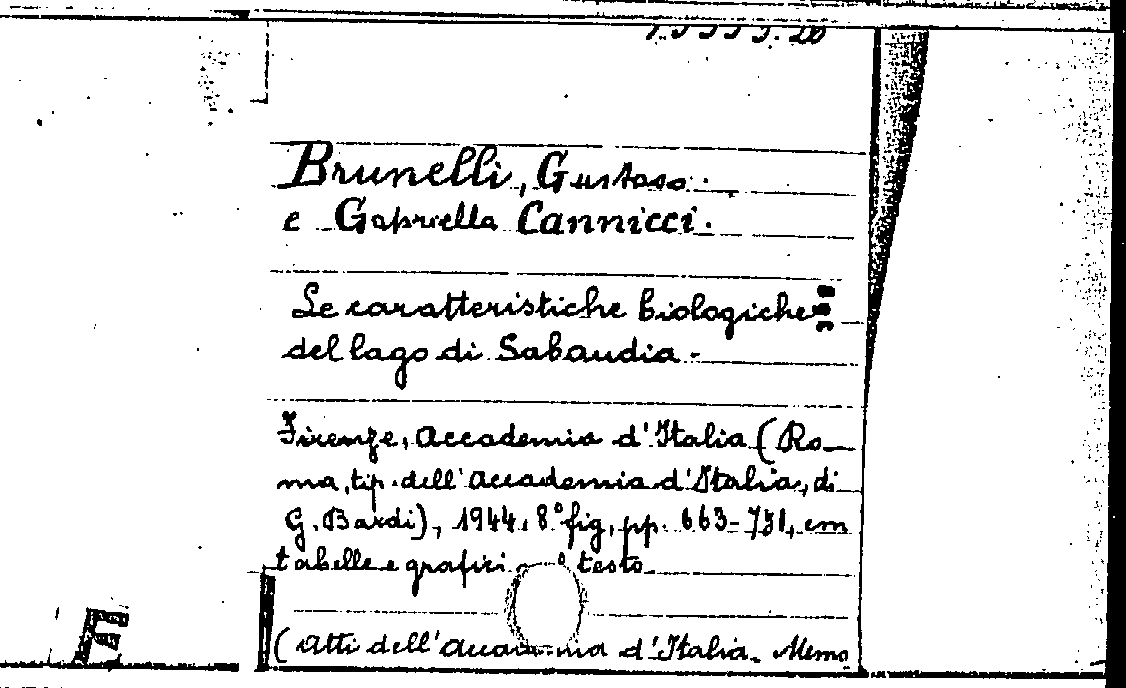 Brunelli, Gustavo.
e Gabriella Cannicci.
Le caratteristiche biologiche
del lago di Sabaudia.
Firenze, Accademia d'Italia (Ro-
ma, tip. dell'Accademia d'Italia, di
G. Bardi), 1944. 8° fig., pp. 663-731, con
tabelle e grafici testo
(Atti dell'Accademia d'Italia. Memo
E